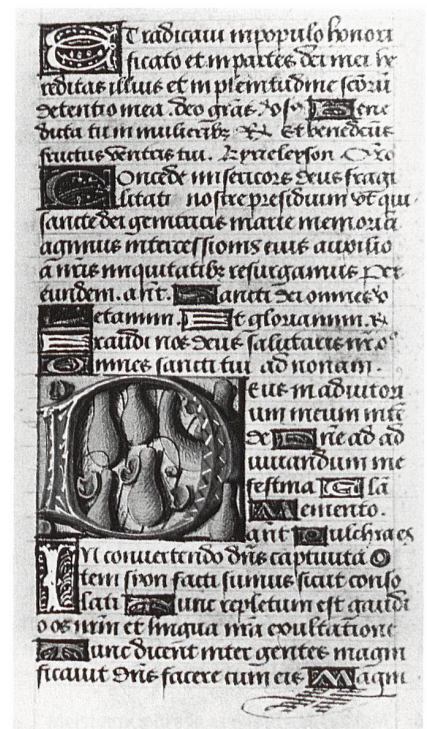 Et radicavi in populo honori
ficato et in partes dei mei he
reditas illius et in plenitudine sc̄orū
detentio mea . deo grās . Vs̄ Bene
dicta tu in mulieribꝫ ℟ Et benedictus
fructus ventris tui . Kyrieleyson Oro
Concede misericors deus fragi
litati nostre presidium vt qui
sancte dei genitricis marie memoriā
agimus intercessionis eius auxilio
a nr̄is iniquitatibꝫ resurgamus Per
eundem . ant . Sancti dei omnes
Letamini . Et gloriamini . ℟
Exaudi nos deus salutaris nr̄
Omnes sancti tui ad nonam .
Deus in adiutori
um meum intē
de Dn̄e ad ad
iuvandum me
festina Glā
Memento .
ant Pulchra es
In convertendo dn̄s captivitā
tem sion facti sumus sicut conso
lati Tunc repletum est gaudi
o os nr̄m et lingua nr̄a exultatione
Tunc dicent inter gentes magni
ficavit dn̄s facere cum eis Magni